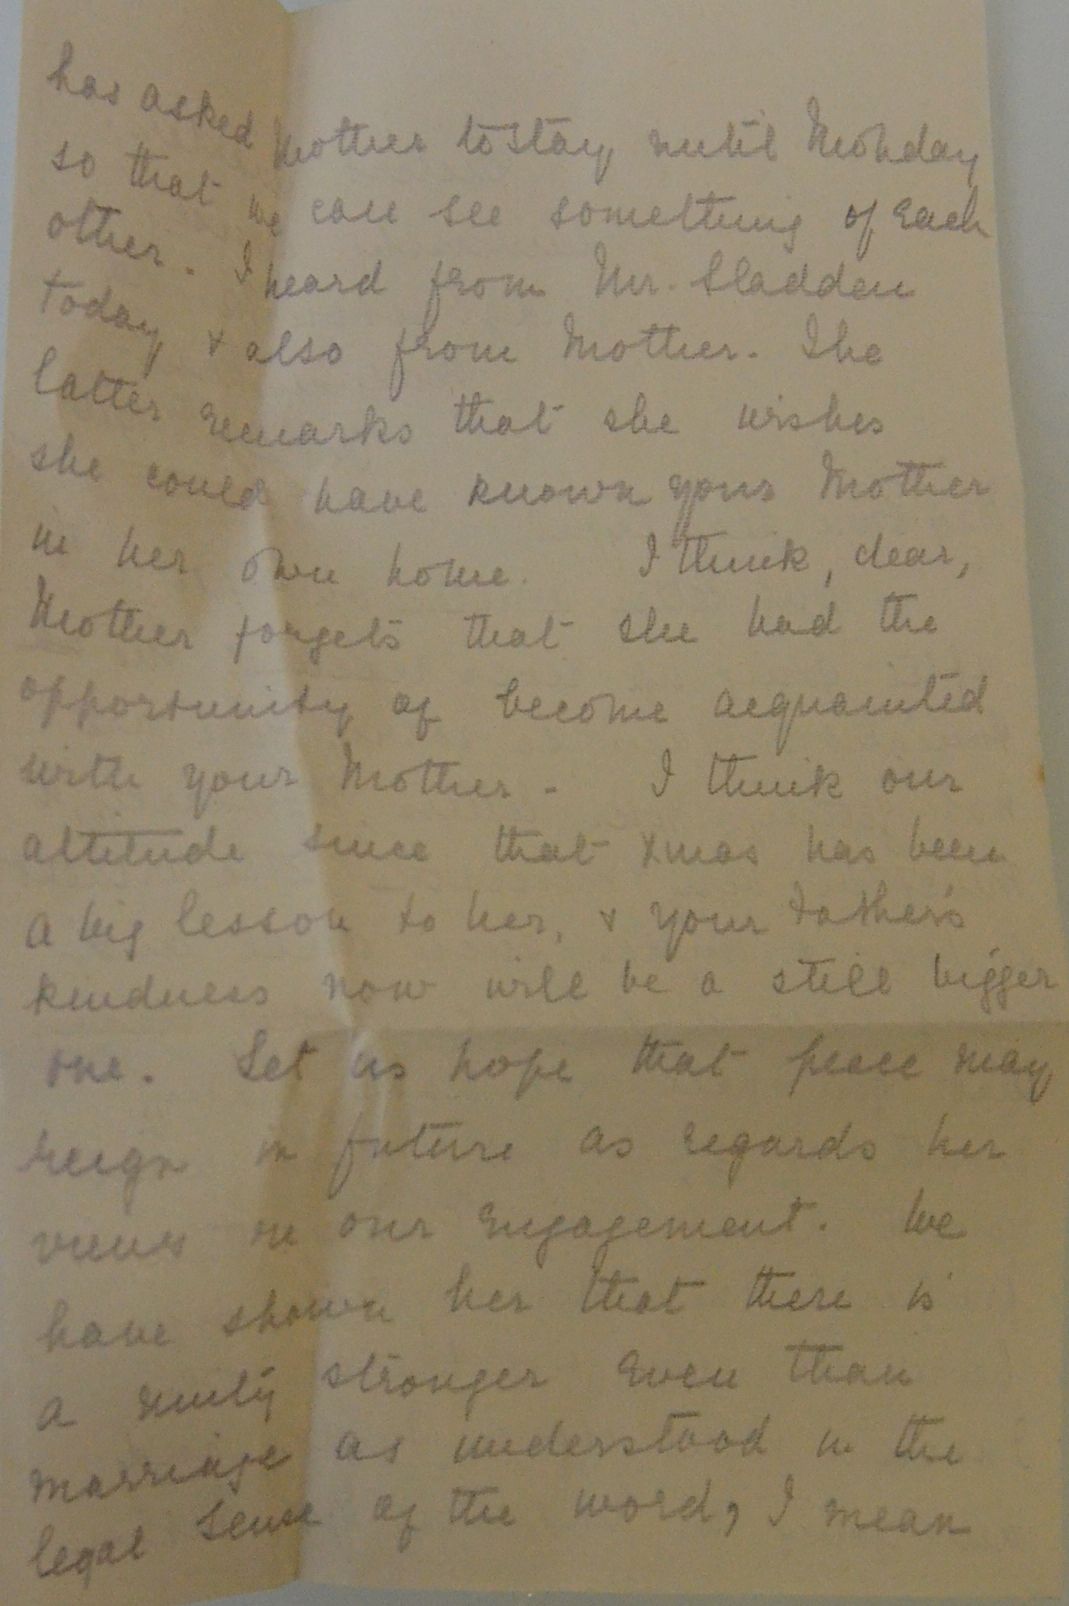 has asked Mother to stay until Monday
so that we can see something of each
other. I heard from Mr. Sladden
today & also from Mother. The
latter remarks that she wishes
she could have known your Mother
in her own home. I think, dear,
Mother forgets that she had the
opportunity of become acquainted
with your Mother. I think our
attitude since that Xmas has been
a big lesson to her, & your Father's
kindness now will be a still bigger
one. Let us hope that peace may
reign in future as regards her
views on our engagement. We
have shown her that there is
a unity stronger even than
marriage as understood in the
legal sense of the word, I mean